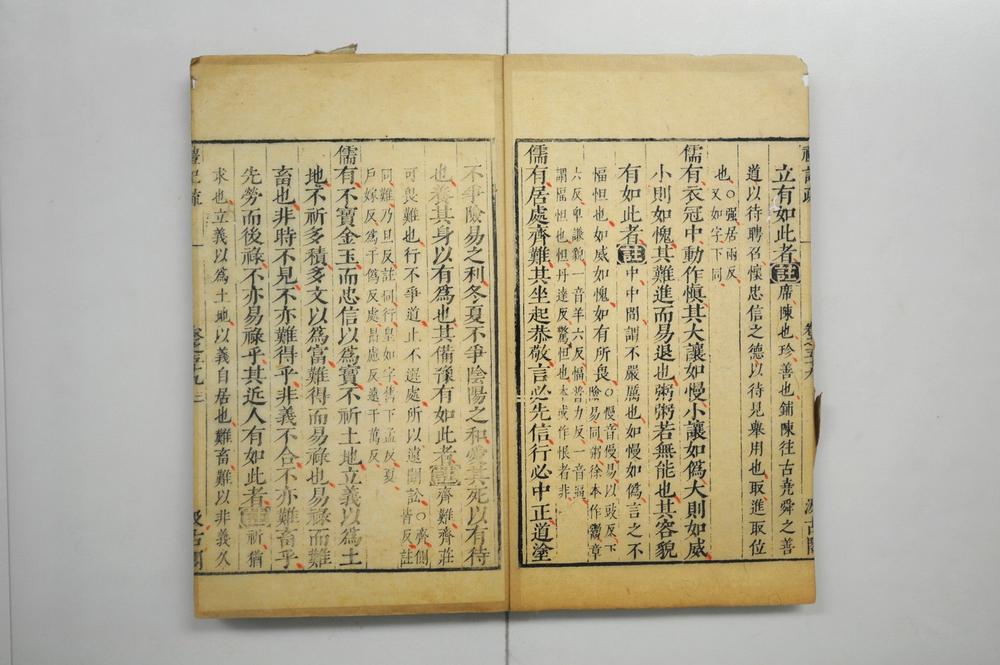 禮記疏 卷之五十九
立有如此者註席陳也珍善也鋪陳往古堯舜之善
道以待聘召懷忠信之德以待見舉用也取進取位
也○强居兩反
又如字下同
儒有衣冠中動作慎其大讓如慢小讓如僞大則如威
小則如愧其難進而易退也粥粥若無能也其容貌
有如此者註中中間謂不嚴厲也如慢如僞言之不
愊怛也如威如愧如有所畏○慢音僈易以豉反下
險易同粥徐本作鬻章
六反卑謙貌一音羊六反愊普力反一音逼
謂愊怛也怛丹達反驚怛也本或作恨者非
儒有居處齊難其坐起恭敬言必先信行必中正道塗
不爭險易之利冬夏不爭陰陽之和愛其死以有待
也養其身以有爲也其備豫有如此者註齊難齊莊
可畏難也行不爭道止不選處所以遠鬬訟○齊側
皆反註
同難乃旦反註同行皇如字舊下孟反夏
戶嫁反爲于僞反處昌慮反遠于萬反
儒有不寶金玉而忠信以爲寶不祈土地立義以爲土
地不祈多積多文以爲富難得而易祿也易祿而難
畜也非時不見不亦難得乎非義不合不亦難畜乎
先勞而後祿不亦易祿乎其近人有如此者註祈猶
求也立義以爲土地以義自居也難畜難以非義久
禮記疏 卷之五十九 三 汲古閣